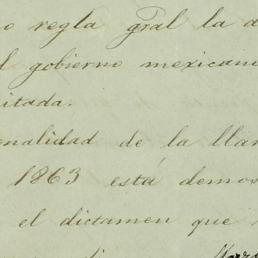 o regla gral la a
l gobierno mexican
itada.
nalidad de la lla
1863 está demos
el dictamen que